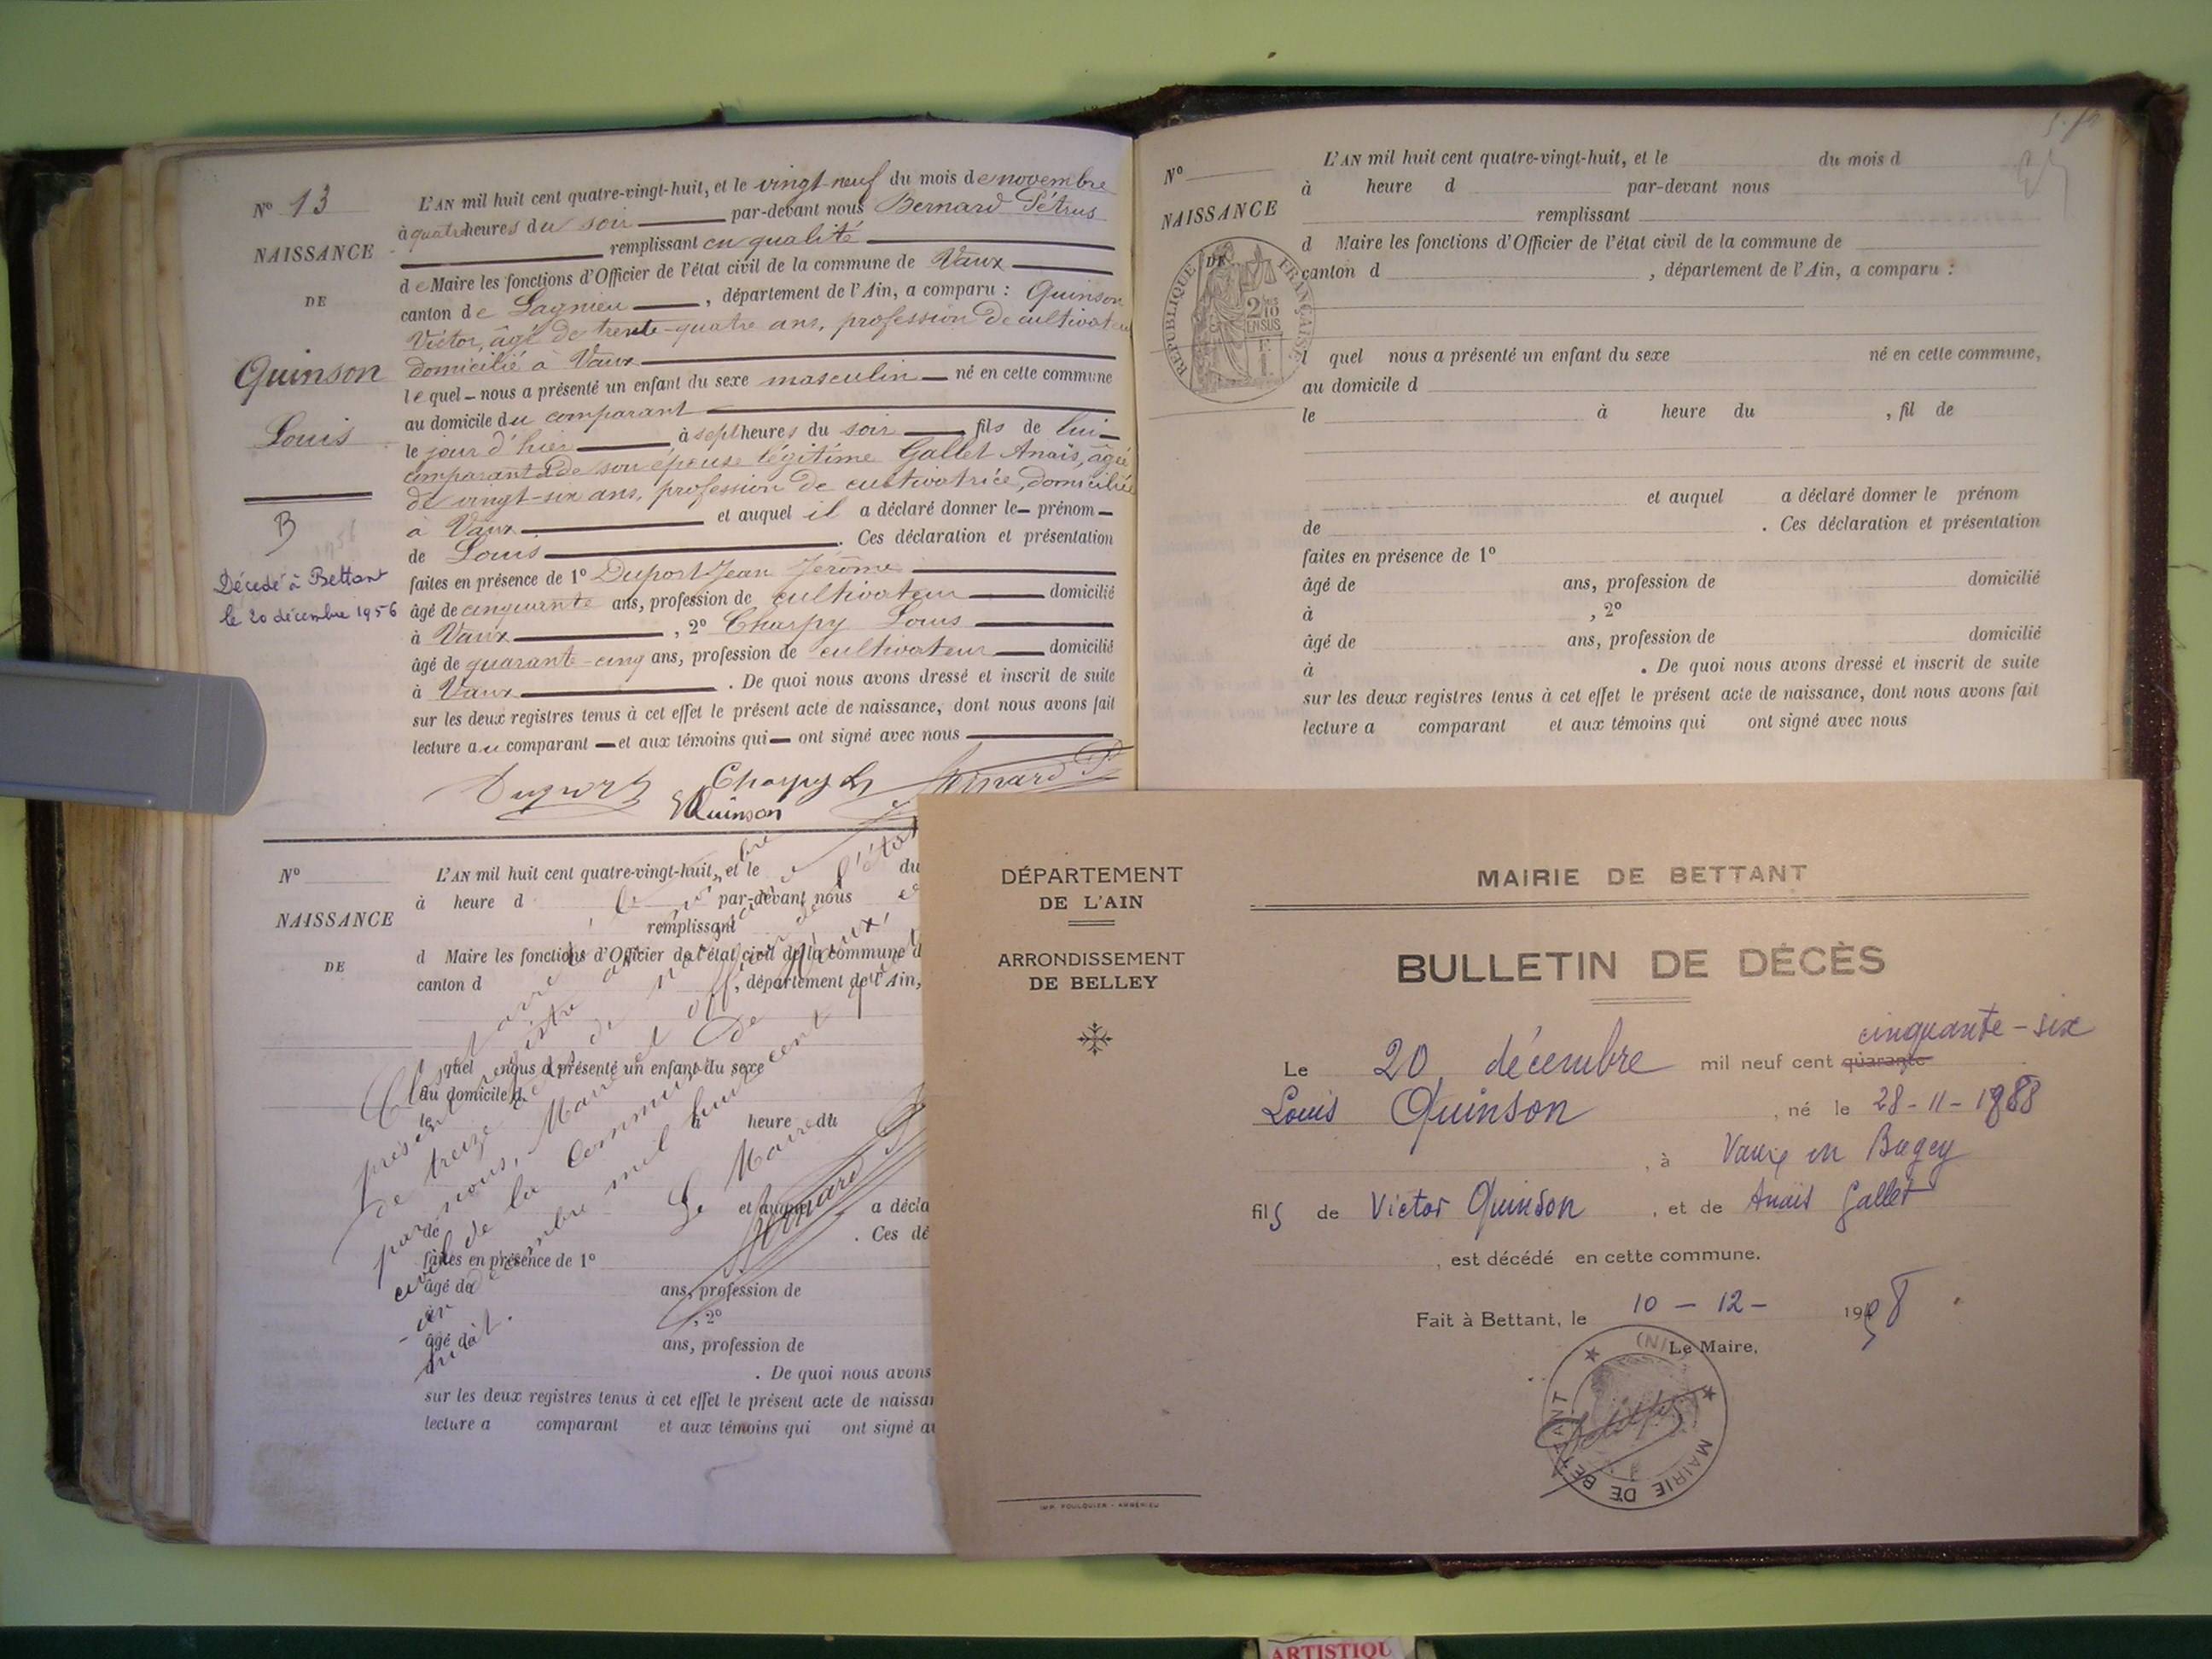 N° 13
NAISSANCE
DE
Quinson
Louis
B
Décédé à Bettant
le 20 décembre 1956
L'AN mil huit cent quatre-vingt-huit, et le vingt-neuf du mois de novembre
à quatre heures du soir par-devant nous Bernard Pétrus
remplissant en qualité
de Maire les fonctions d'Officier de l'état civil de la commune de Vaux
canton de Lagnieu, département de l'Ain, a comparu : Quinson
Victor, âgé de trente-quatre ans, profession de cultivateur
domicilié à Vaux
lequel nous a présenté un enfant du sexe masculin né en cette commune
au domicile du comparant
le jour d'hier à sept heures du soir fils de lui
comparant & de son épouse légitime Gallet Anaïs, âgée
de vingt-six ans, profession de cultivatrice, domiciliée
à Vaux et auquel il a déclaré donner le prénom
de Louis. Ces déclaration et présentation
faites en présence de 1° Duport Jean Jérôme
âgé de cinquante ans, profession de cultivateur domicilié
à Vaux, 2° Charpy Louis
âgé de quarante-cinq ans, profession de cultivateur domicilié
à Vaux. De quoi nous avons dressé et inscrit de suite
sur les deux registres tenus à cet effet le présent acte de naissance, dont nous avons fait
lecture au comparant et aux témoins qui ont signé avec nous
Duport Charpy L Bernard P
Quinson
N°
NAISSANCE
DE
L'AN mil huit cent quatre-vingt-huit, et le du
à heure d par-devant nous
remplissant
d Maire les fonctions d'Officier de l'état civil de la commune d
canton d , département de l'Ain,
l quel nous a présenté un enfant du sexe
au domicile d
le à heure du
et auquel a décla
de . Ces dé
faites en présence de 1°
âgé de ans, profession de
à , 2°
âgé de ans, profession de
à . De quoi nous avons
sur les deux registres tenus à cet effet le présent acte de naissan
lecture a comparant et aux témoins qui ont signé av
présent registre
de treize
par nous, Maire et officier de l'état
civil de la commune de Vaux,
décembre mil huit cent
Le Maire
Bernard P
N°
NAISSANCE
DE
RÉPUBLIQUE FRANÇAISE
2/10 EN SUS
L'AN mil huit cent quatre-vingt-huit, et le du mois d
à heure d par-devant nous
remplissant
d Maire les fonctions d'Officier de l'état civil de la commune de
canton d , département de l'Ain, a comparu :
l quel nous a présenté un enfant du sexe né en cette commune,
au domicile d
le à heure du , fil de
et auquel a déclaré donner le prénom
de . Ces déclaration et présentation
faites en présence de 1°
âgé de ans, profession de domicilié
à , 2°
âgé de ans, profession de domicilié
à . De quoi nous avons dressé et inscrit de suite
sur les deux registres tenus à cet effet le présent acte de naissance, dont nous avons fait
lecture a comparant et aux témoins qui ont signé avec nous
DÉPARTEMENT
DE L'AIN
ARRONDISSEMENT
DE BELLEY
IMP. FOULQUIER - AMBÉRIEU
MAIRIE DE BETTANT
BULLETIN DE DÉCÈS
cinquante-six
Le 20 décembre mil neuf cent quarante
Louis Quinson, né le 28-11-1888
, à Vaux en Bugey
fils de Victor Quinson, et de Anaïs Gallet
, est décédé en cette commune.
Fait à Bettant, le 10 - 12 - 1958
Le Maire,
MAIRIE DE BETTANT
(AIN)
ARTISTIQU